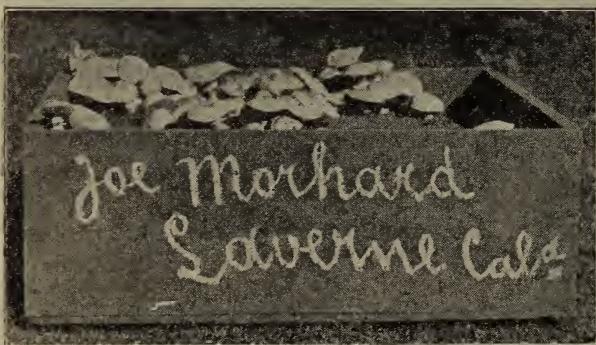 Joe Morhard
Laverne Cal.a